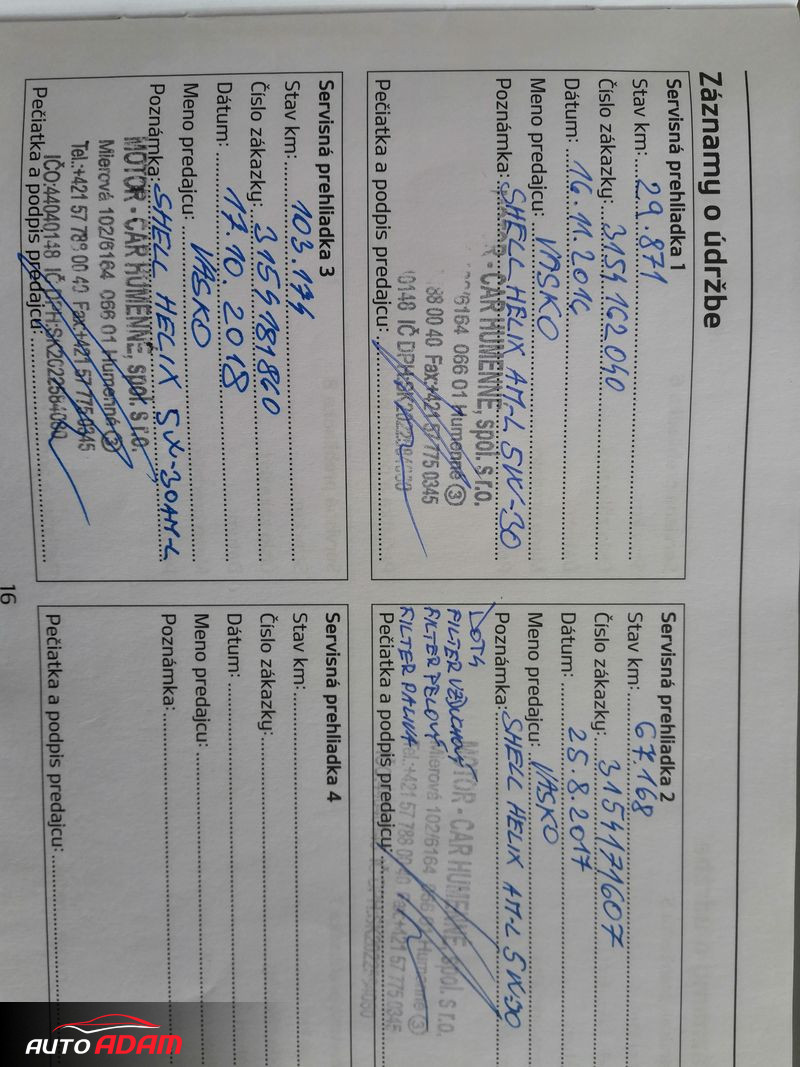 Záznamy o údržbe
Servisná prehliadka 1
Stav km: 29.871
Číslo zákazky: 3154162040
Dátum: 16.11.2016
Meno predajcu: VASKO
Poznámka: SHELL HELIX AM-L 5W-30
CAR HUMENNÉ, spol. s r.o.
/6164 066 01 Humenné 3
88 00 40 Fax:+421 57 775 0345
0148 IČ DPH:
Pečiatka a podpis predajcu:
Servisná prehliadka 2
Stav km: 67.168
Číslo zákazky: 3154171607
Dátum: 25.8.2017
Meno predajcu: VASKO
Poznámka: SHELL HELIX AM-L 5W-30
DOT4
FILTER VZDUCHOVÝ
FILTER PEĽOVÝ
FILTER PALIVA
MOTOR - CAR HUMENNÉ, spol. s r.o.
Mierová 102/6164 066 01 Humenné 3
Tel.:+421 57 788 00 40 Fax:+421 57 775 0345
Pečiatka a podpis predajcu:
Servisná prehliadka 3
Stav km: 103.174
Číslo zákazky: 3154181860
Dátum: 17.10.2018
Meno predajcu: VASKO
Poznámka: SHELL HELIX 5W-30 AM-L
MOTOR - CAR HUMENNÉ, spol. s r.o.
Mierová 102/6164 066 01 Humenné 3
Tel.:+421 57 788 00 40 Fax:+421 57 775 0345
IČO:44040148 IČ DPH:SK2022584060
Pečiatka a podpis predajcu:
Servisná prehliadka 4
Stav km:
Číslo zákazky:
Dátum:
Meno predajcu:
Poznámka:
Pečiatka a podpis predajcu:
16
AUTO ADAM